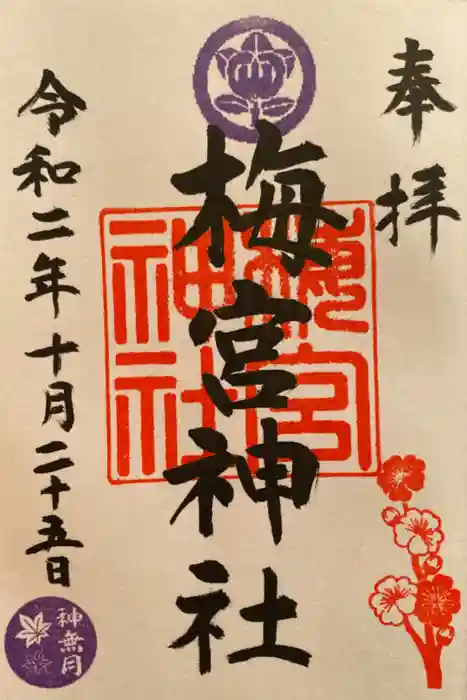 奉拝
梅宮神社
梅宮
神社
令和二年十月二十五日
神無月